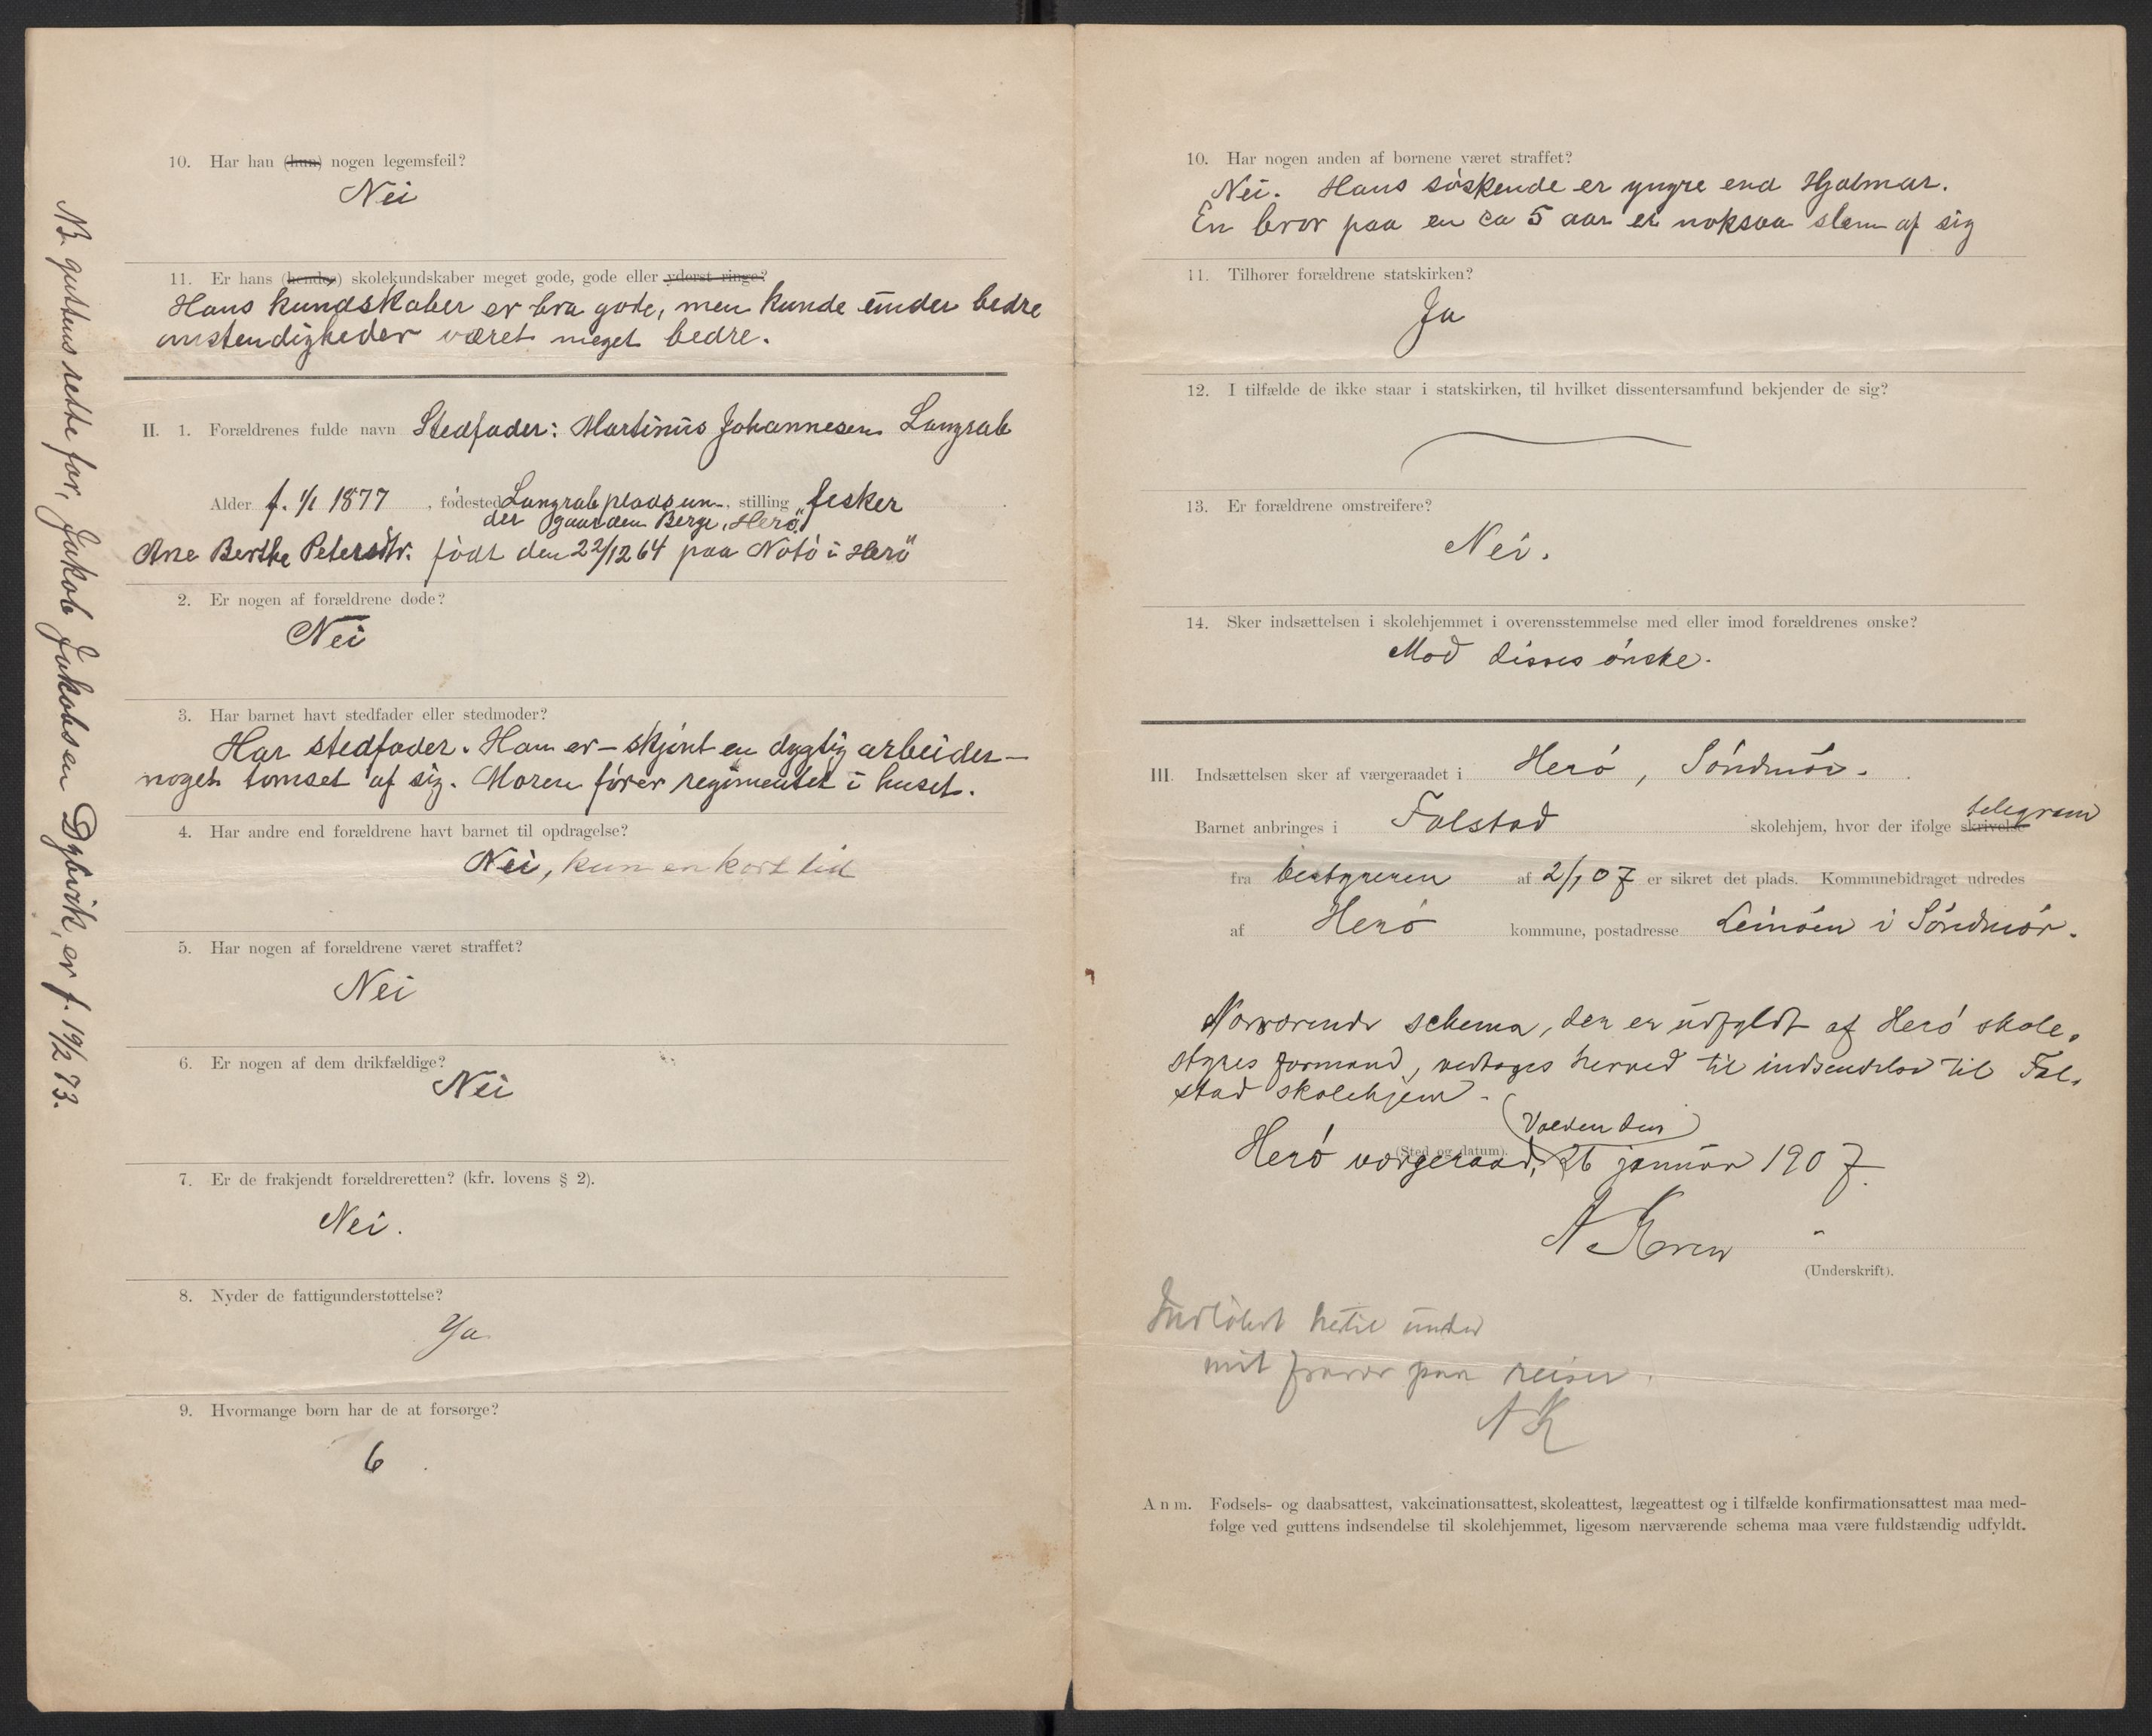 10. Har han (hun) nogen legemsfeil?
Nei
11. Er hans (hendes) skolekundskaber meget gode, gode eller yderst ringe?
Hans kundskaber er bra gode, men kunde under bedre
omstendigheder været meget bedre.
II. 1. Forældrenes fulde navn Stedfader: Martinus Johannesen Langrab
Alder f. 1/1 1877, fødested Langrab plads un-, stilling fisker
der gaarden Berge, Herø
Ane Berthe Petersdtr. født den 22/12 64 paa Notø i Herø
2. Er nogen af forældrene døde?
Nei
3. Har barnet havt stedfader eller stedmoder?
Har stedfader. Han er – skjønt en dygtig arbeider –
noget tomset af sig. Moren fører regimentet i huset.
4. Har andre end forældrene havt barnet til opdragelse?
Nei, kun en kort tid
5. Har nogen af forældrene været straffet?
Nei
6. Er nogen af dem drikfældige?
Nei
7. Er de frakjendt forældreretten? (kfr. lovens § 2).
Nei.
8. Nyder de fattigunderstøttelse?
Ja
9. Hvormange børn har de at forsørge?
6
NB. guttens rette far, Jakob Jakobsen Dybvik, er f. 19/2 73.
10. Har nogen anden af børnene været straffet?
Nei. Hans søskende er yngre end Hjalmar.
En bror paa en ca 5 aar er noksaa slem af sig
11. Tilhører forældrene statskirken?
Ja
12. I tilfælde de ikke staar i statskirken, til hvilket dissentersamfund bekjender de sig?
13. Er forældrene omstreifere?
Nei.
14. Sker indsættelsen i skolehjemmet i overensstemmelse med eller imod forældrenes ønske?
Mod disses ønske.
III. Indsættelsen sker af værgeraadet i Herø, Søndmør.
telegram
Barnet anbringes i Falstad skolehjem, hvor der ifølge skrivelse
fra bestyreren af 2/1 07 er sikret det plads. Kommunebidraget udredes
af Herø kommune, postadresse Leinøen i Søndmør.
Nærværende schema, der er udfyldt af Herø skole-
styres formand, vedtages herved til indsendelse til Fal-
stad skolehjem.
Volden den
(Sted og datum).
Herø værgeraad, 26 januar 1907.
A Koren
(Underskrift).
Indløbet hertil under
mit fravær paa reiser.
AK
Anm. Fødsels- og daabsattest, vakcinationsattest, skoleattest, lægeattest og i tilfælde konfirmationsattest maa med-
følge ved guttens indsendelse til skolehjemmet, ligesom nærværende schema maa være fuldstændig udfyldt.